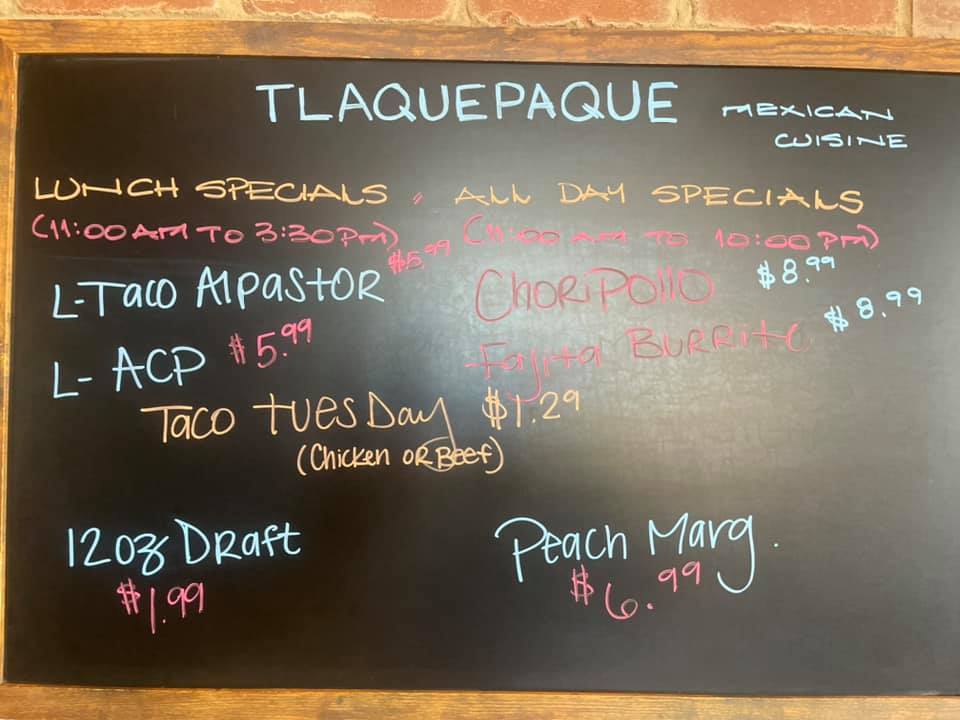 TLAQUEPAQUE MEXICAN CUISINE
LUNCH SPECIALS
(11:00 AM TO 3:30 PM)
L-Taco AlpastOR $5.99
L- ACP $5.99
ALL DAY SPECIALS
(11:00 AM TO 10:00 PM)
ChoriPollo $8.99
-Fajita BURRito $8.99
Taco tuesDay $1.29
(Chicken OR Beef)
12oz Draft
$1.99
Peach Marg.
$6.99